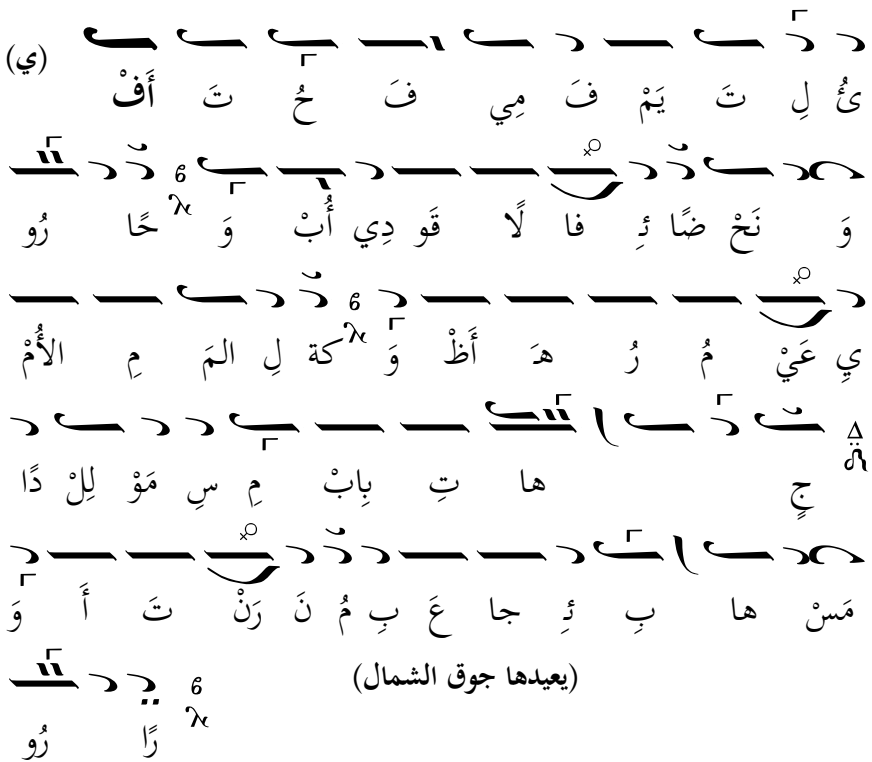 (ي) أَفْ تَ حُ فَ مِي فَ يَمْ تَ لِ ئُ
رُو حًا وَ أُبْ دِي قَو لًا فا ئِـ ضًا نَحْ وَ
الأُمْ مِ المَ لِ كة وَ أَظْ هَـ رُ مُ عَيْ يِ
دًا لِلْ مَوْ سِ مِ بِابْ تِ ها جٍ
وَ أَ تَ رَنْ نَ مُ بِ عَ جا ئِـ بِ ها مَسْ
رُو رًا (يعيدها جوق الشمال)